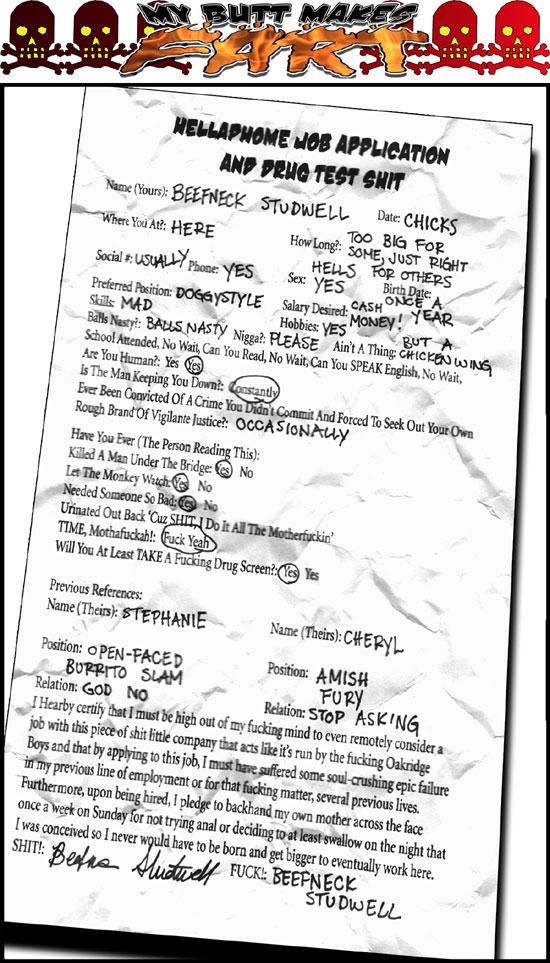 MY BUTT MAKES
FART
HELLAPHOME JOB APPLICATION
AND DRUG TEST SHIT
Name (Yours): BEEFNECK STUDWELL Date: CHICKS
Where You At?: HERE How Long?: TOO BIG FOR
SOME, JUST RIGHT
HELLS FOR OTHERS
Social #: USUALLY Phone: YES Sex: YES Birth Date: ONCE A
YEAR
Preferred Position: DOGGYSTYLE Salary Desired: CASH
MONEY!
Skills: MAD Hobbies: YES
Balls Nasty?: BALLS NASTY Nigga?: PLEASE Ain't A Thing: BUT A
CHICKEN WING
School Attended, No Wait, Can You Read, No Wait, Can You SPEAK English, No Wait,
Are You Human?: Yes Yes
Is The Man Keeping You Down?: Constantly
Ever Been Convicted Of A Crime You Didn't Commit And Forced To Seek Out Your Own
Rough Brand Of Vigilante Justice?: OCCASIONALLY
Have You Ever (The Person Reading This):
Killed A Man Under The Bridge: Yes No
Let The Monkey Watch: Yes No
Needed Someone So Bad: Yes No
Urinated Out Back 'Cuz SHIT, I Do It All The Motherfuckin'
TIME, Mothafuckah!: Fuck Yeah
Will You At Least TAKE A Fucking Drug Screen?: Yes Yes
Previous References:
Name (Theirs): STEPHANIE Name (Theirs): CHERYL
Position: OPEN-FACED
BURRITO SLAM
Position: AMISH
FURY
Relation: GOD NO Relation: STOP ASKING
I Hearby certify that I must be high out of my fucking mind to even remotely consider a
job with this piece of shit little company that acts like it's run by the fucking Oakridge
Boys and that by applying to this job, I must have suffered some soul-crushing epic failure
in my previous line of employment or for that fucking matter, several previous lives.
Furthermore, upon being hired, I pledge to backhand my own mother across the face
once a week on Sunday for not trying anal or deciding to at least swallow on the night that
I was conceived so I never would have to be born and get bigger to eventually work here.
SHIT!: Studwell FUCK!: BEEFNECK
STUDWELL